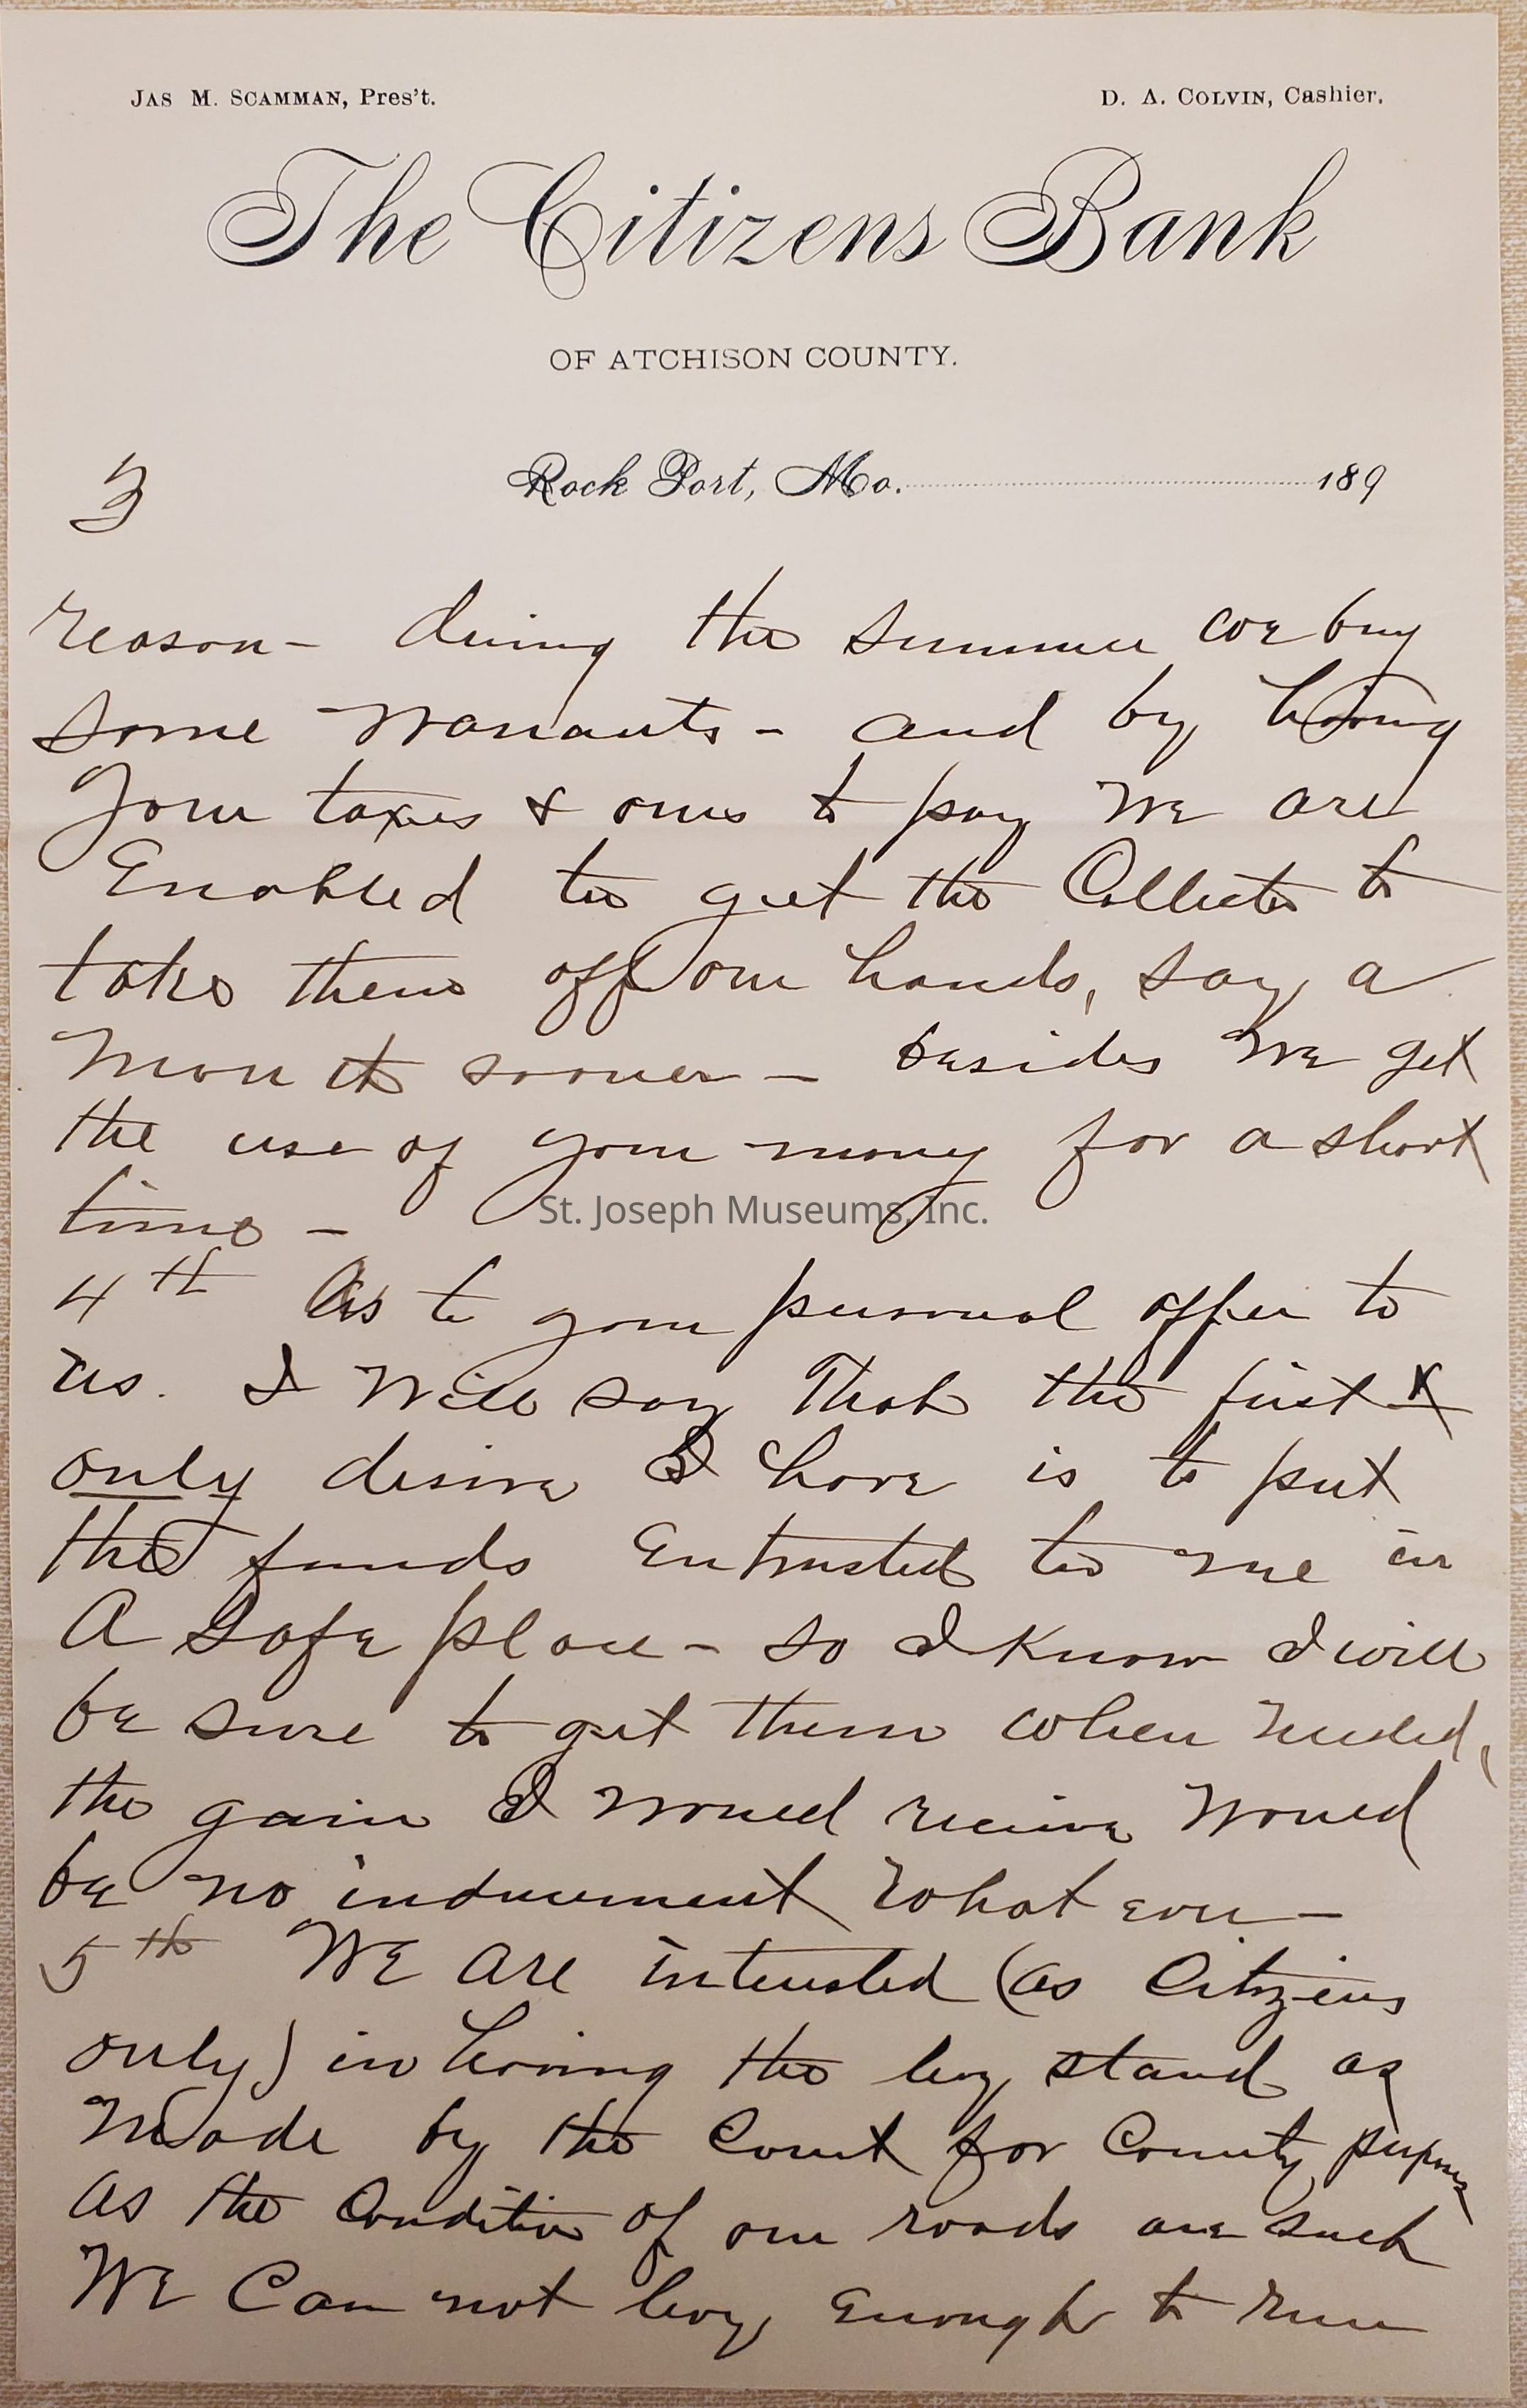 Jas M. Scamman, Pres't.
D. A. Colvin, Cashier.
The Citizens Bank
OF ATCHISON COUNTY.
Rock Port, Mo. 189
3
reason - during the summer we buy
some warrants - and by having
your taxes & ours to pay we are
Enabled to get the Collector to
take them off our hands, say a
month sooner - besides we get
the use of your money for a short
time -
St. Joseph Museums, Inc.
4th As to your personal offer to
us. I will say That the first &
only desire I have is to put
the funds Entrusted to me in
A Safe place - so I know I will
be sure to get them when needed,
the gain I would receive would
be no inducement whatever -
5th We are interested (as Citizens
only) in having the levy stand as
Made by the Court for County purposes
as the Condition of our roads are such
We Can not levy Enough to run